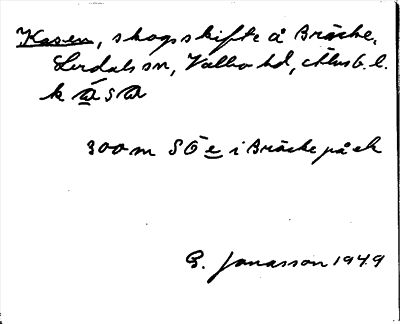 Kasen, skogsskifte å Bräcke,
Lerdals sn, Valbo hd, Älvsb. l.
k á s a
300 m SÖ e i Bräcke på ek
G. Jonasson 1949